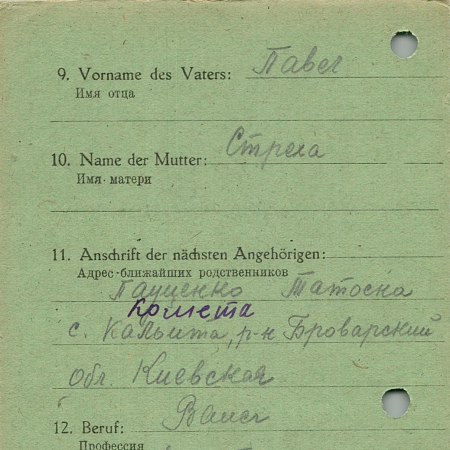 9. Vorname des Vaters: Павел
Имя отца
10. Name der Mutter: Стреха
Имя матери
11. Anschrift der nächsten Angehörigen:
Адрес ближайших родственников
Пащенко
с. Кальита, р-н Броварский
обл. Киевская
12. Beruf:
Профессия